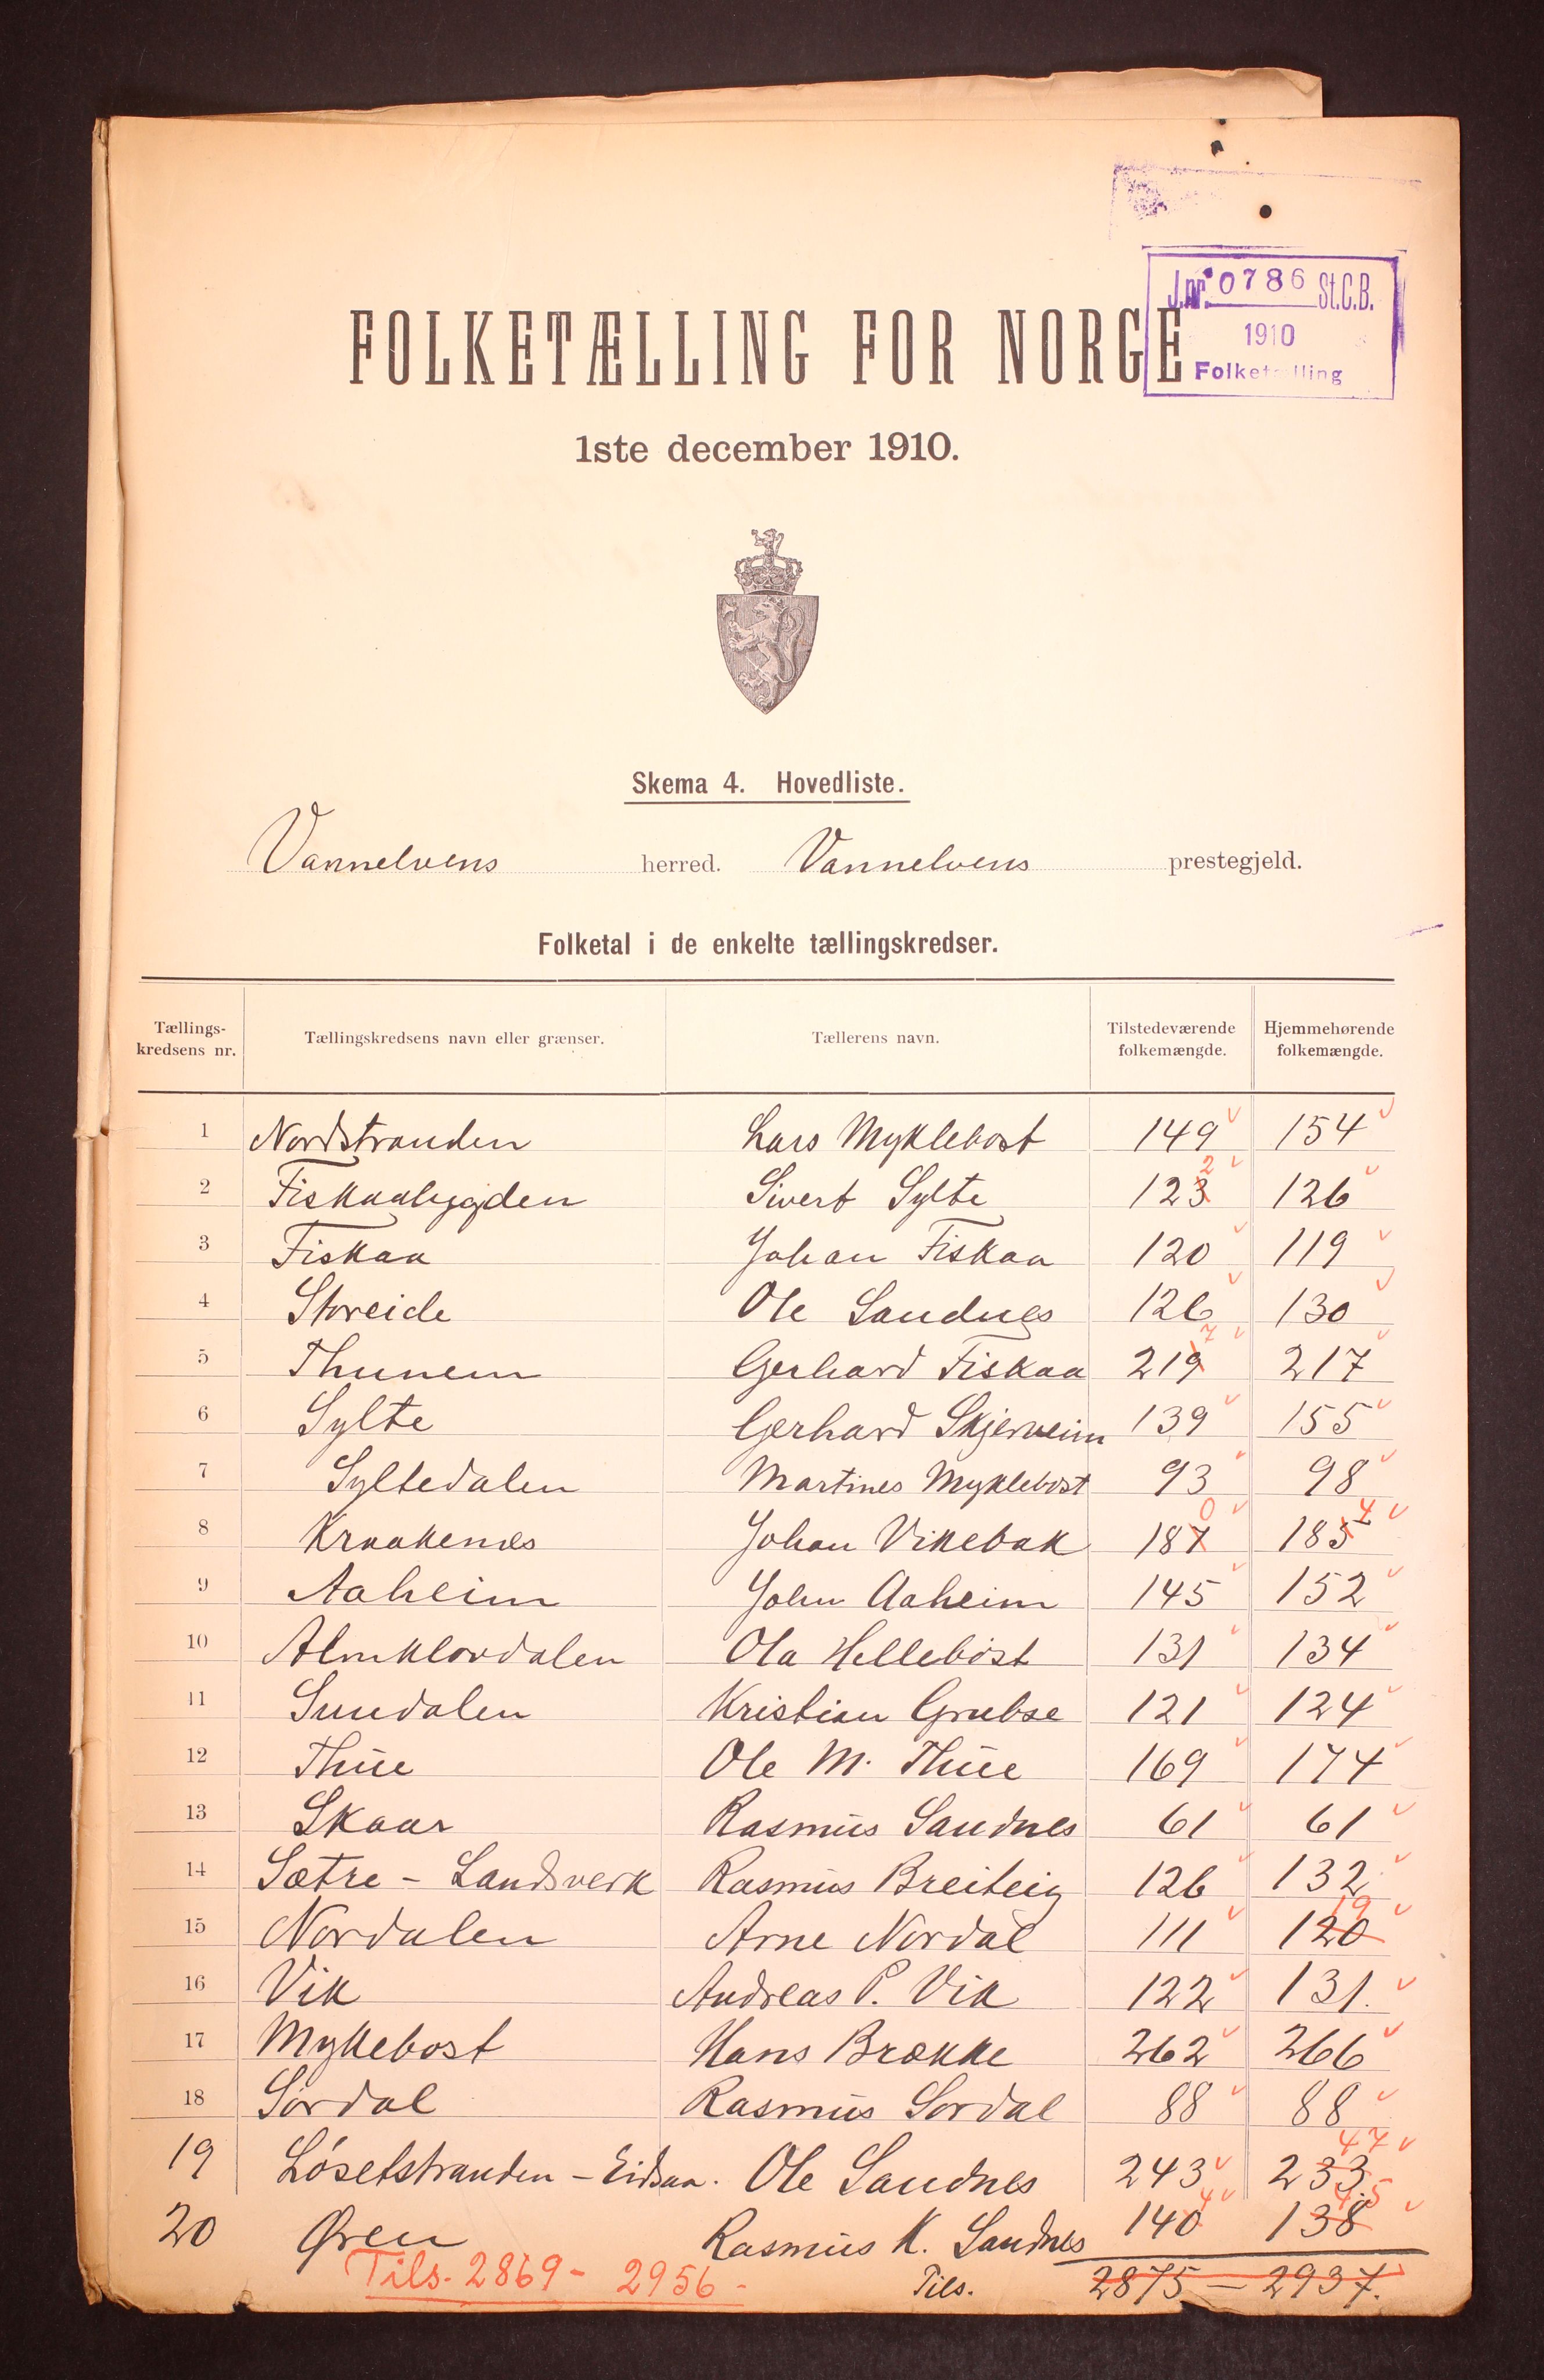 J.nr. 0786 St.C.B.
1910
Folketælling
FOLKETÆLLING FOR NORGE
1ste december 1910.
Skema 4. Hovedliste.
Vannelvens herred. Vannelvens prestegjeld.
Folketal i de enkelte tællingskredser.
Tællings-kredsens nr. Tællingskredsens navn eller grænser. Tællerens navn. Tilstedeværende folkemængde. Hjemmehørende folkemængde.
1 Nordstranden Lars Myklebost 149 154
2 Fiskaabygden Sivert Sylte 123 2 126
3 Fiskaa Johan Fiskaa 120 119
4 Storeide Ole Sandnes 126 130
5 Thunem Gerhard Fiskaa 219 7 217
6 Sylte Gerhard Skjerveim 139 155
7 Syltedalen Martines Myklebost 93 98
8 Kraakenes Johan Vikebak 187 0 185 4
9 Aaheim John Aaheim 145 152
10 Almklovdalen Ola Hellebost 131 134
11 Sundalen Kristian Grubse 121 124
12 Thue Ole M. Thue 169 174
13 Skaar Rasmus Sandnes 61 61
14 Sætre - Landsverk Rasmus Breiteig 126 132
15 Nordalen Arne Nordal 111 120 19
16 Vik Andreas P. Vik 122 131.
17 Myklebost Hans Brække 262 266
18 Sørdal Rasmus Sordal 88 88
19 Løsetstranden - Eidsaa. Ole Sandnes 243 233 47
20 Øren Rasmus K. Sandnes 140 4 138 45
Tils. 2869 - 2956 - Tils. 2875 - 2937.